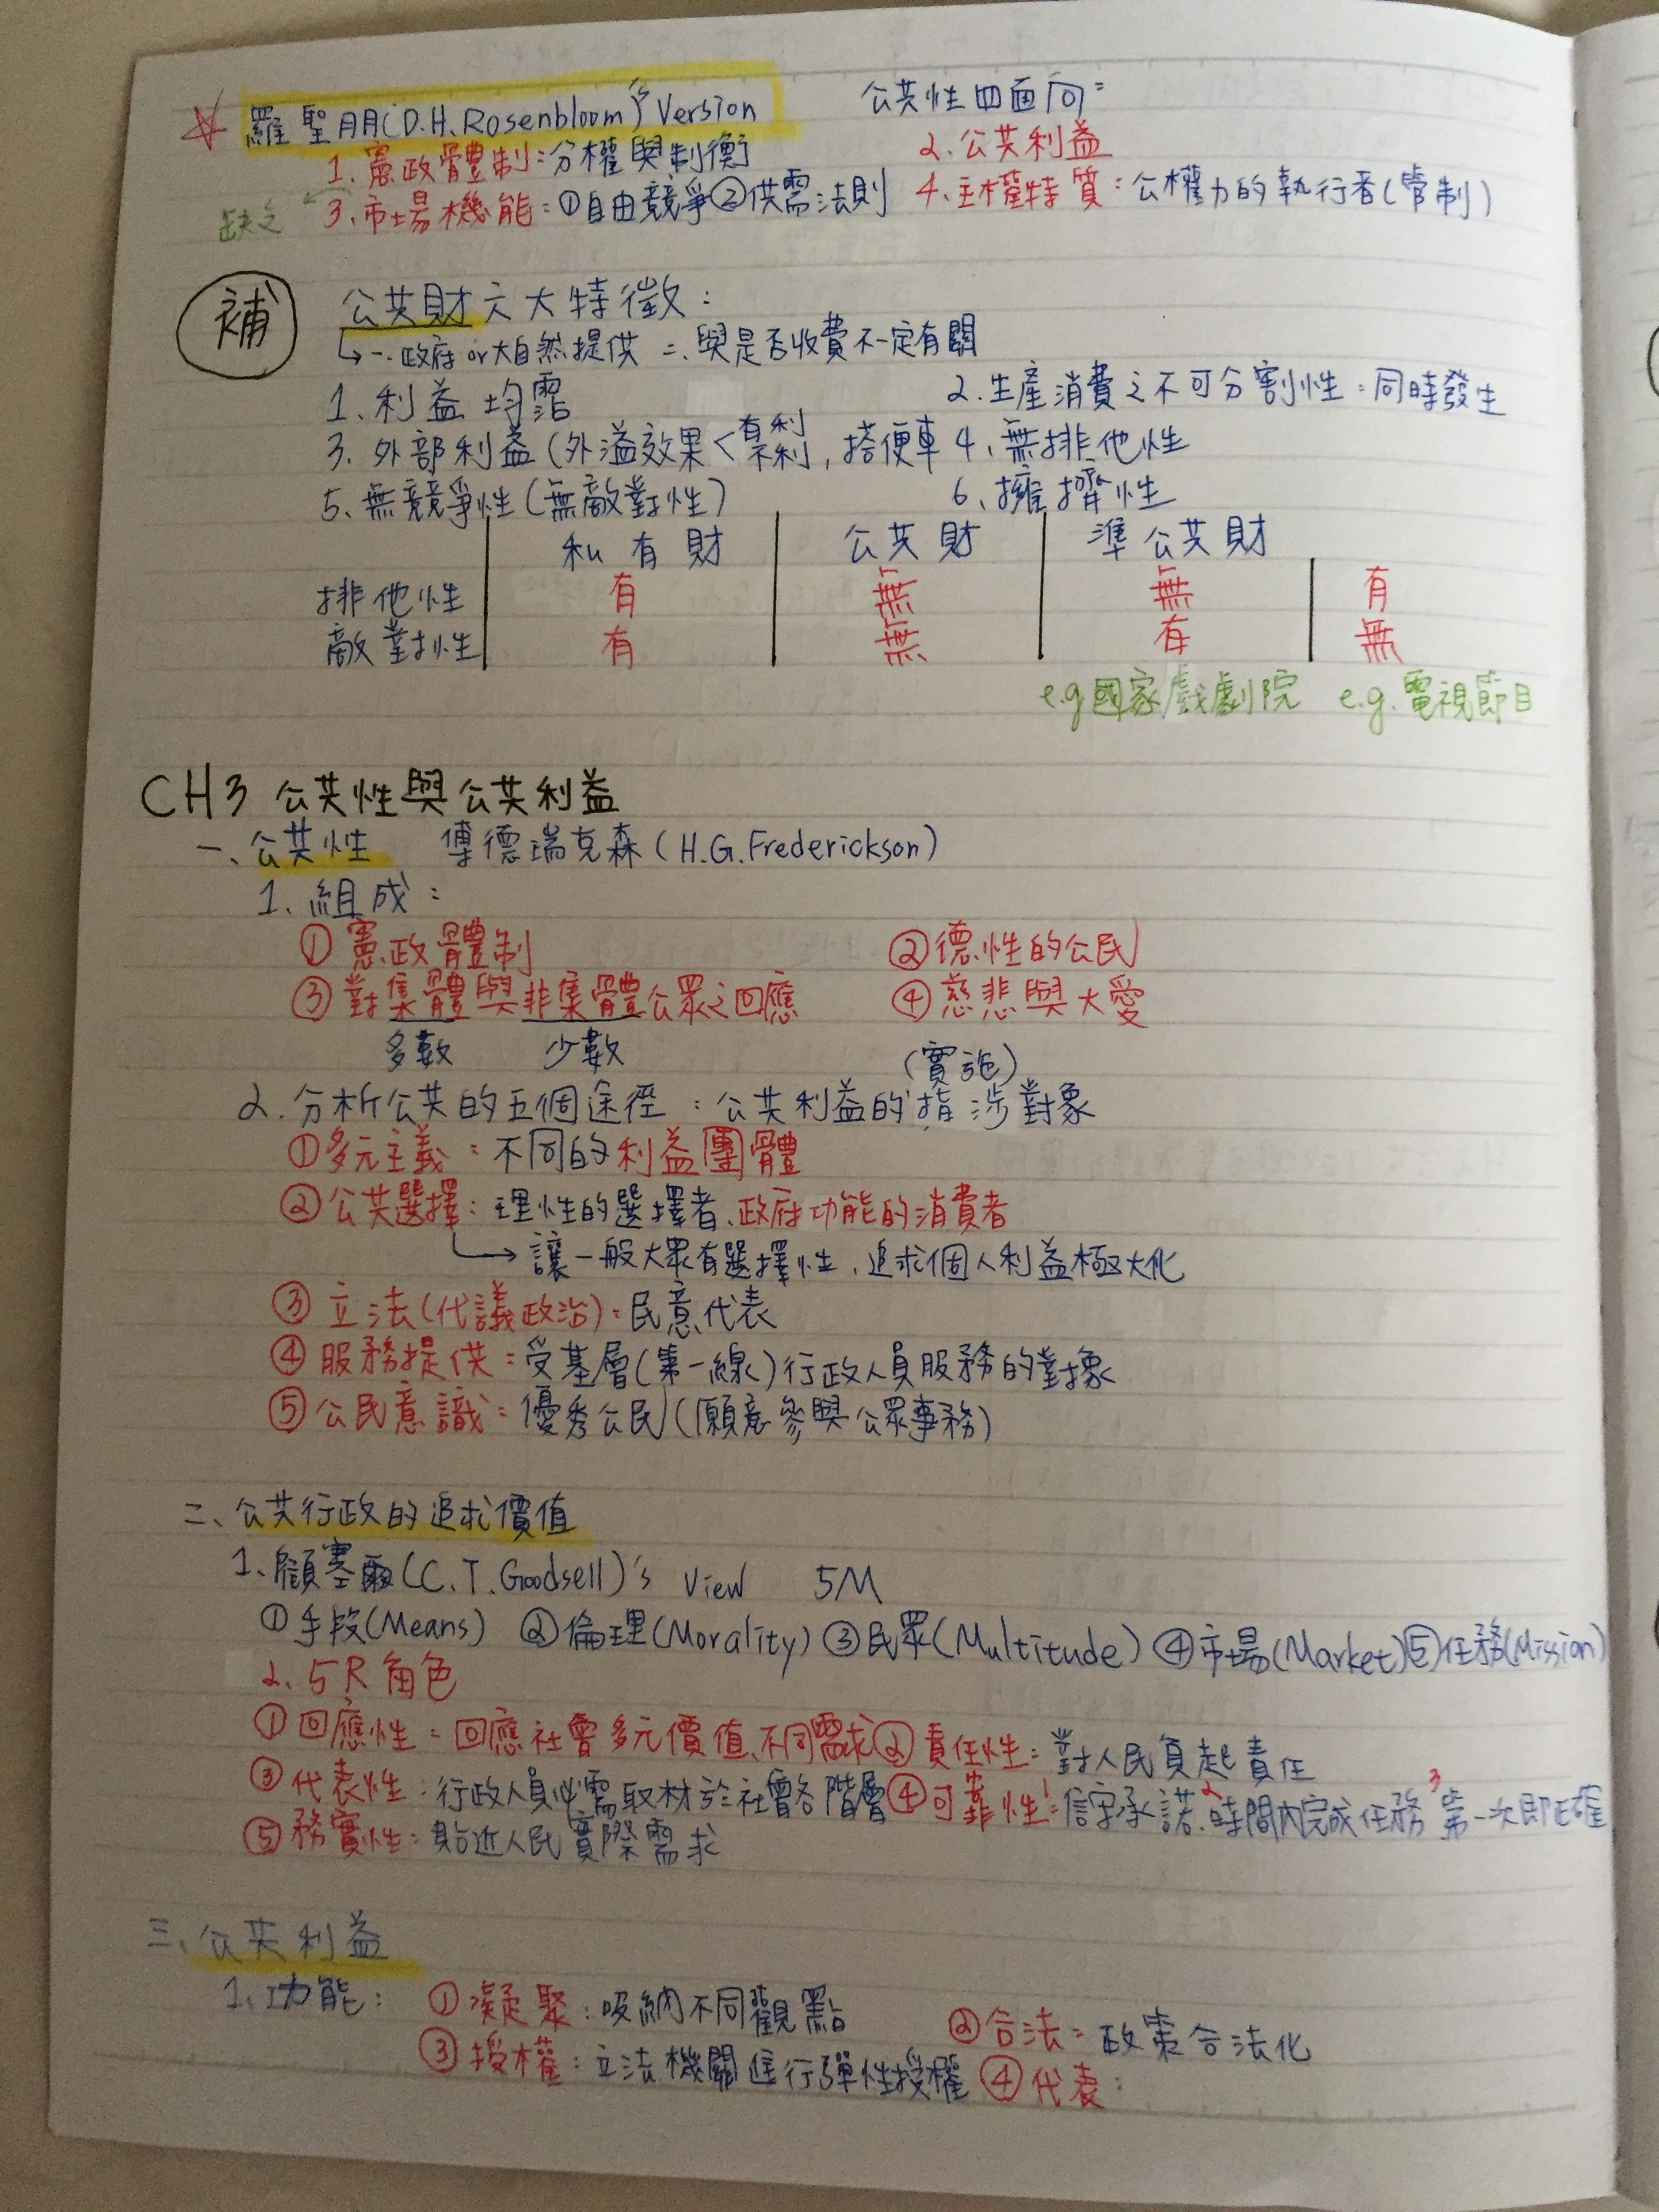 羅聖朋(D.H.Rosenbloom)'s Version 公共性四面向:
1.憲政體制:分權與制衡 2.公共利益
缺乏 3.市場機能:①自由競爭②供需法則 4.主權特質:公權力的執行者(管制)
補 公共財六大特徵:
一.政府or大自然提供 二、與是否收費不一定有關
1、利益均霑 2.生產消費之不可分割性:同時發生
3.外部利益(外溢效果<有利 不利,搭便車 4、無排他性
5、無競爭性(無敵對性) 6、擁擠性
私有財 公共財 準公共財
排他性 有 無 無 有
敵對性 有 無 有 無
e.g國家戲劇院 e.g.電視節目
CH3 公共性與公共利益
一、公共性 傅德瑞克森(H.G.Frederickson)
1、組成:
①憲政體制 ②德性的公民
③對集體與非集體公眾之回應 ④慈悲與大愛
多數 少數 (實施)
2.分析公共的五個途徑:公共利益的指涉對象
①多元主義:不同的利益團體
②公共選擇:理性的選擇者、政府功能的消費者
→讓一般大眾有選擇性、追求個人利益極大化
③立法(代議政治):民意代表
④服務提供:受基層(第一線)行政人員服務的對象
⑤公民意識:優秀公民(願意參與公眾事務)
二、公共行政的追求價值
1.顧塞爾(C.T.Goodsell)'s View 5M
①手段(Means) ②倫理(Morality) ③民眾(Multitude) ④市場(Market)⑤任務(Mission)
2.5R角色
①回應性:回應社會多元價值、不同需求②責任性:對人民負起責任
③代表性:行政人員必需取材於社會各階層④可靠性:1信守承諾、2時間內完成任務 3第一次即正確
⑤務實性:貼近人民實際需求
三、公共利益
1、功能: ①凝聚:吸納不同觀點 ②合法:政策合法化
③授權:立法機關進行彈性授權 ④代表: